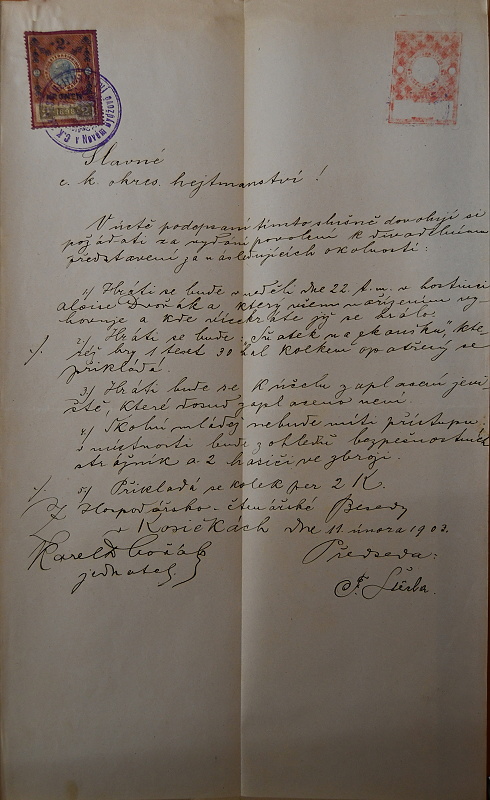 Slavné
c. k. okres. hejtmanství!
V úctě podepsaní tímto slušně dovolují si
požádati za vydání povolení k divadelnímu
představení za následujících okolností:
1/ Hráti se bude v neděli dne 22 t.m. v hostinci
Aloise Dvořáka který všem nařízením vy-
hovuje a kde vícekráte již se hrálo.
2/ Hráti se bude: "Sňatek na zkoušku", kte-
réž hry 1 text 30 hal kolkem opatřený se
přikládá.
3/ Hráti bude se k účelu zaplacení jevi-
ště, které dosud zaplaceno není.
4/ Školní mládež nebude míti přístupu,
v místnosti bude z ohledů bezpečnostních
strážník a 2 hasiči ve zbroji.
5/ Přikládá se kolek per 2 K.
Z Hospodářsko-čtenářské Besedy
v Kosičkách dne 11 února 1903.
Karel
Předseda:
jednatel.
F. Štěrba.